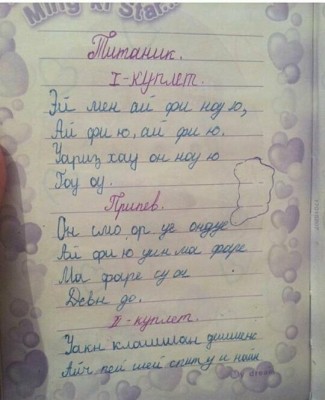 Ming ki Star...
Титаник.
I-куплет.
Эй мен ай фи ноу ю,
Ай фи ю, ай фи ю.
Уариз хау он ноу ю
Гоу оу.
Припев.
Он смо ор уе ондуе
Ай фи ю уин ма фаре
Ма фаре су он
Девн до.
II-куплет.
Уакн клашиан
Айч пей шей спиту и наин
dream